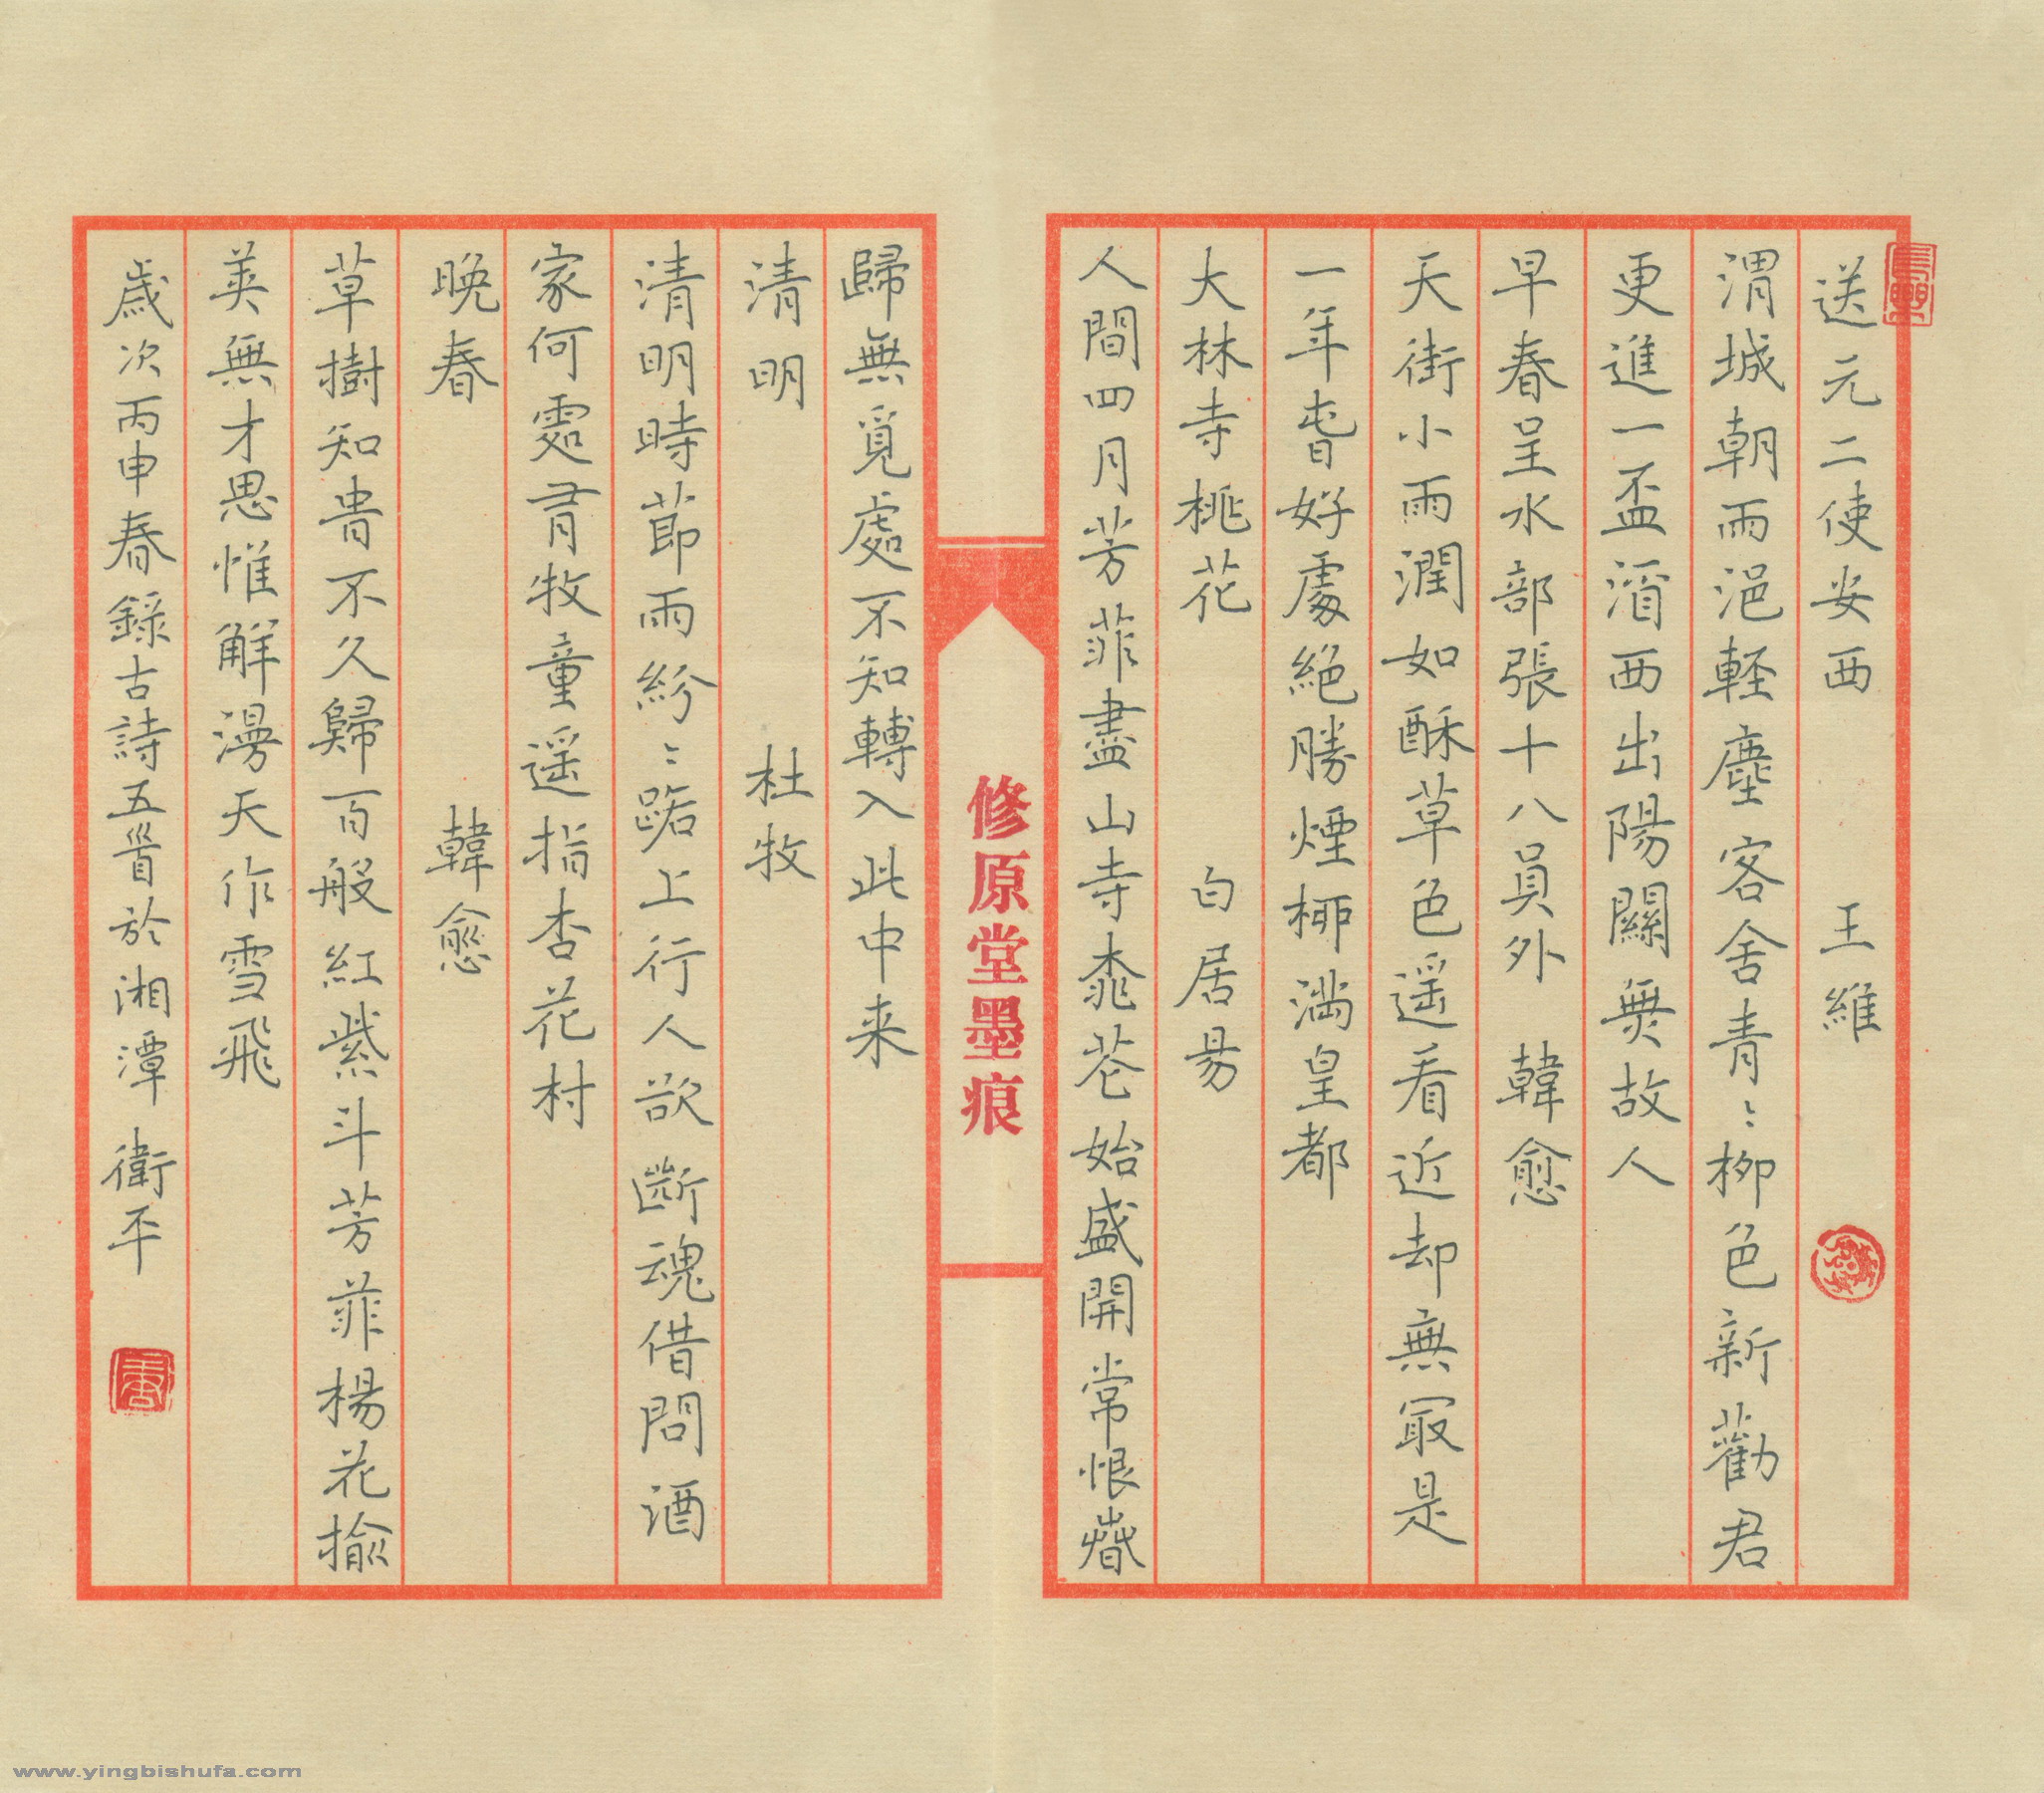 送元二使安西 王維
渭城朝雨浥輕塵客舍青〻柳色新勸君
更進一盃酒西出陽關無故人
早春呈水部張十八員外 韓愈
天街小雨潤如酥草色遥看近却無冣是
一年春好處絕勝煙栁満皇都
大林寺桃花 白居易
人間四月芳菲盡山寺桃花始盛開常恨春
歸無覓處不知轉入此中来
清明 杜牧
清明時節雨紛〻路上行人欲斷魂借問酒
家何處有牧童遥指杏花村
晚春 韓愈
草樹知春不久歸百般紅紫斗芳菲楊花榆
莢無才思惟解漫天作雪飛
歳次丙申春錄古詩五首於湘潭 衛平
修原堂墨痕
www.yingbishufa.com